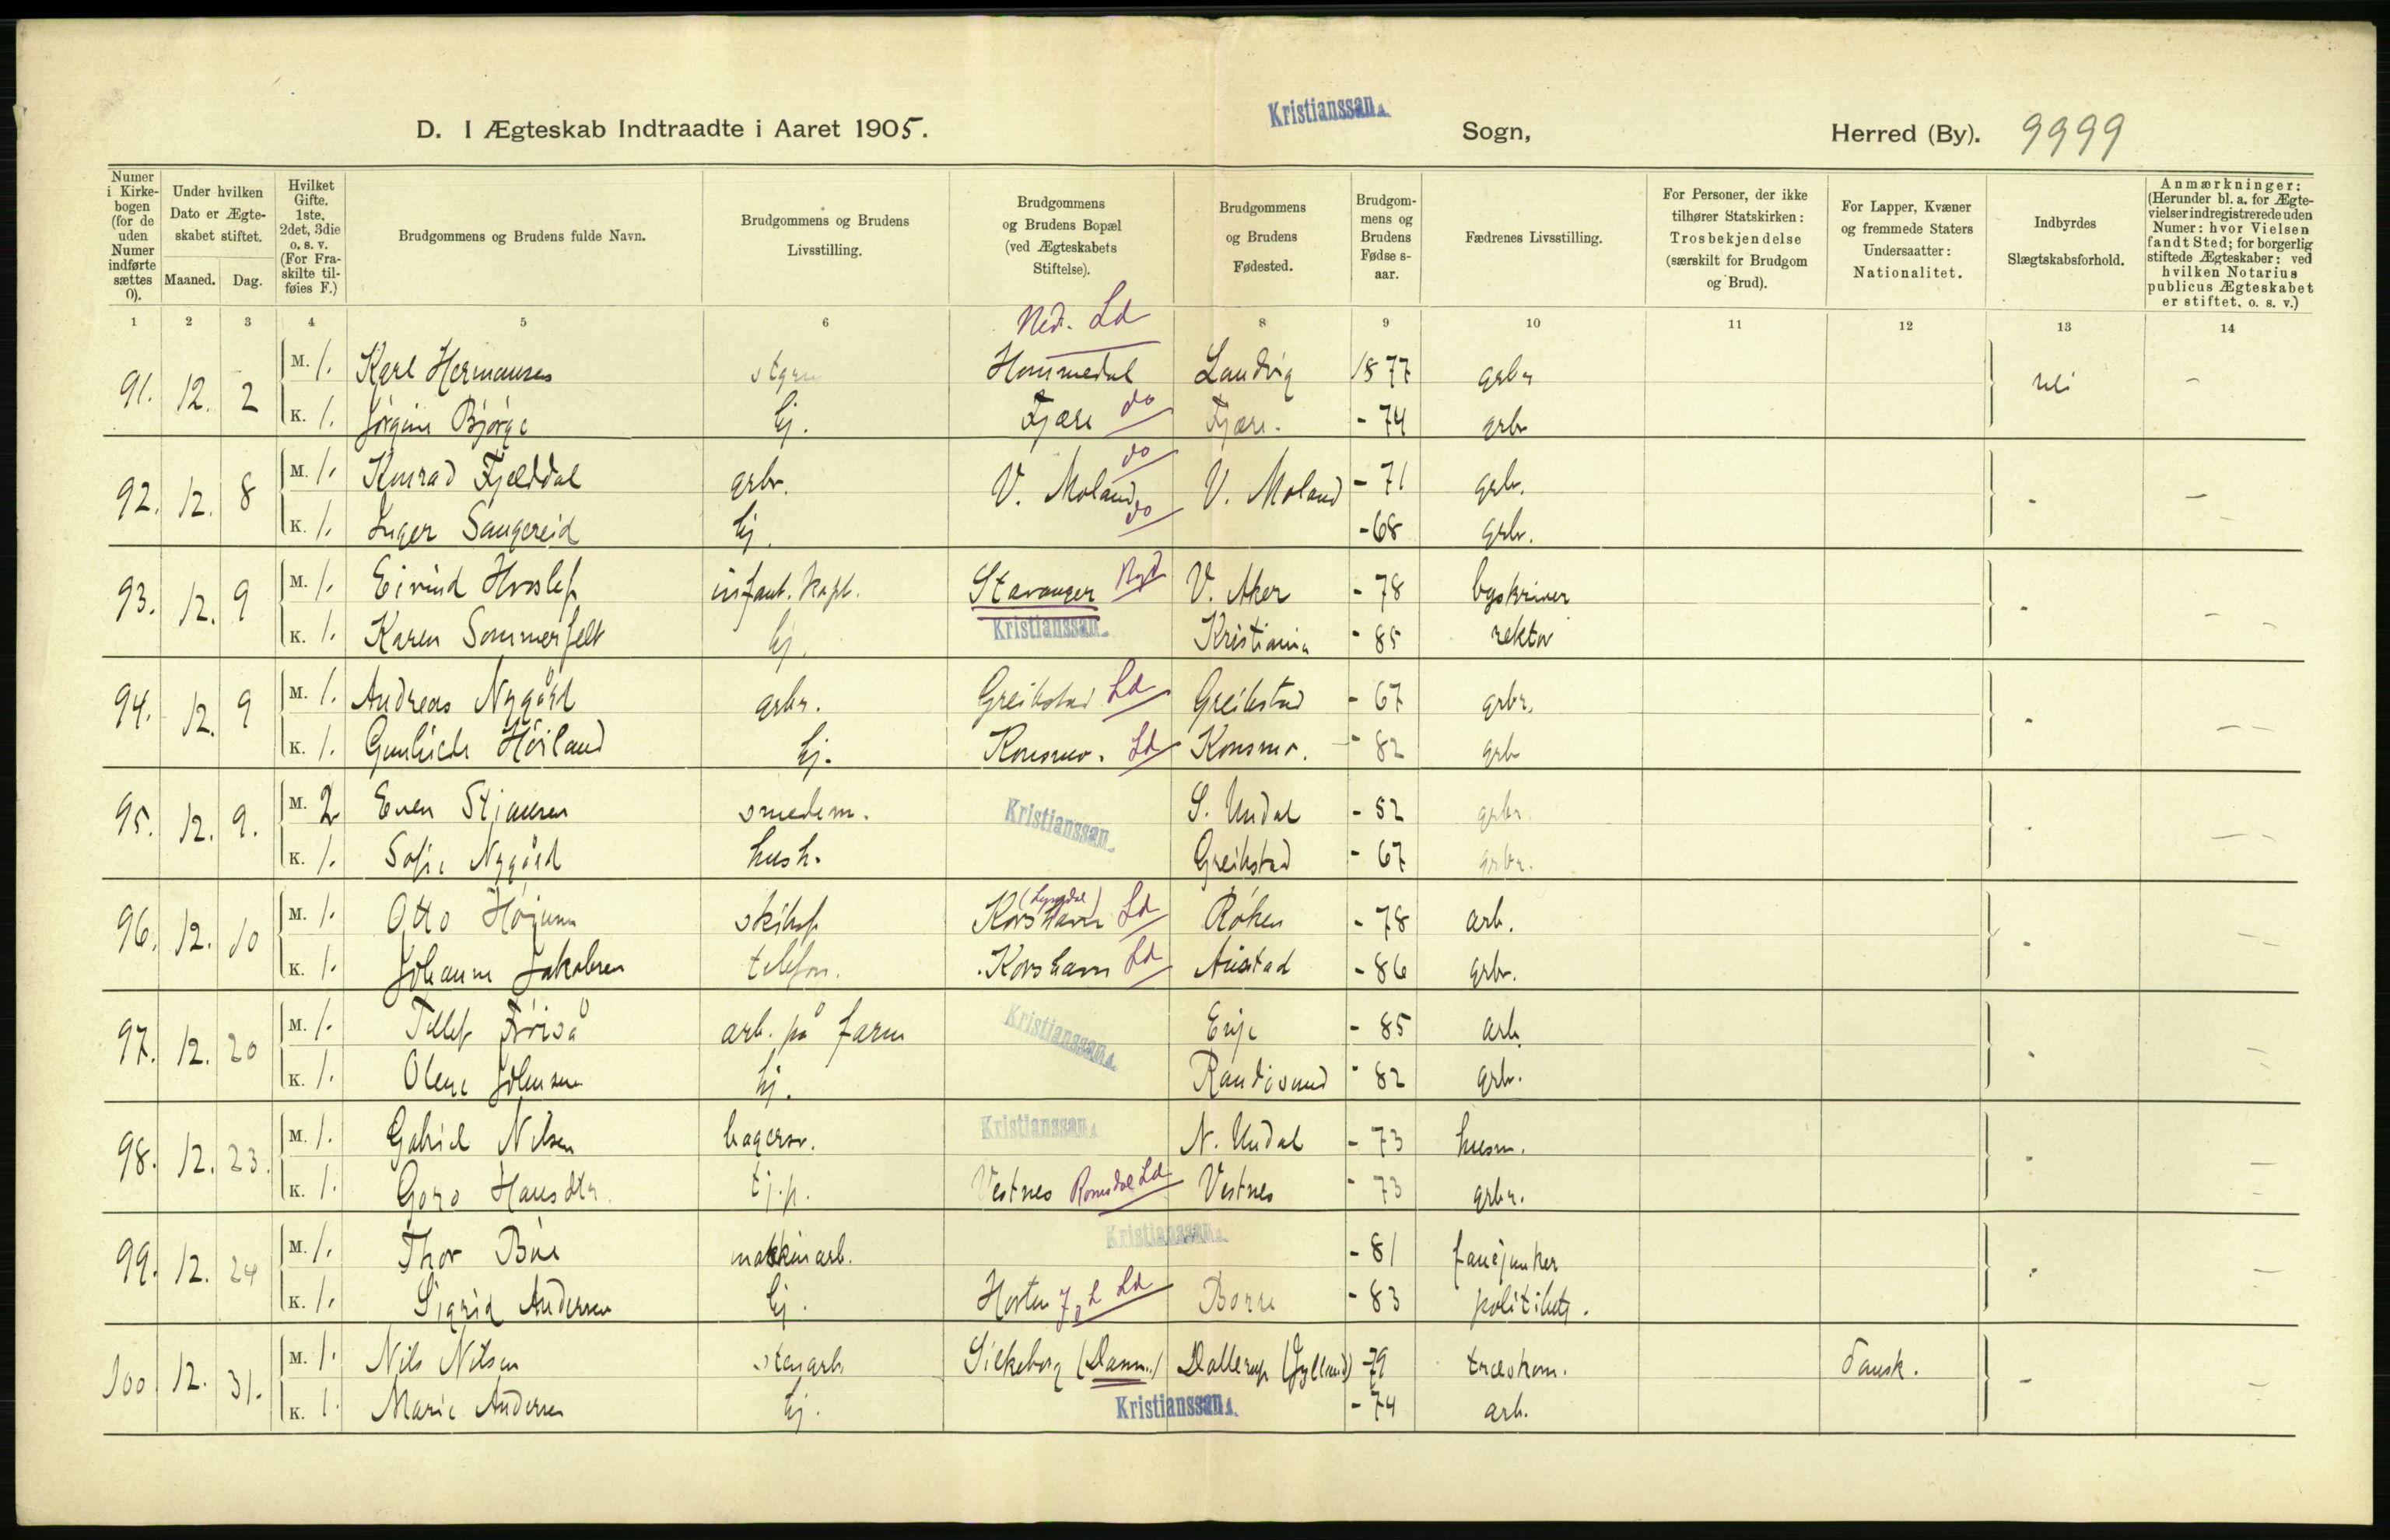 Kristianssan
D. I Ægteskab Indtraadte i Aaret 1905. Sogn, Herred (By). 9999
Numer i Kirkebogen (for de uden Numer indførte sættes 0).
Under hvilken Dato er Ægteskabet stiftet.
Maaned. Dag.
Hvilket Gifte. 1ste, 2det, 3die o. s. v. (For Fraskilte tilføies F.)
Brudgommens og Brudens fulde Navn.
Brudgommens og Brudens Livsstilling.
Brudgommens og Brudens Bopæl (ved Ægteskabets Stiftelse).
Brudgommens og Brudens Fødested.
Brudgommens og Brudens Fødse s-aar.
Fædrenes Livsstilling.
For Personer, der ikke tilhører Statskirken: Trosbekjendelse (særskilt for Brudgom og Brud).
For Lapper, Kvæner og fremmede Staters Undersaatter: Nationalitet.
Indbyrdes Slægtskabsforhold.
Anmærkninger: (Herunder bl. a. for Ægtevielser indregistrerede uden Numer: hvor Vielsen fandt Sted; for borgerlig stiftede Ægteskaber: ved hvilken Notarius publicus Ægteskabet er stiftet, o. s. v.)
1 2 3 4 5 6 Ned. Ld 8 9 10 11 12 13 14
91. 12. 2 M. 1. Karl Hermansen Hommedal Landvig 1877 grbr nei -
K. 1. Jørgine Bjørge hj. Fjære do Fjære. - 74 grbr
92. 12. 8 M. 1. Konrad Fjelddal grbr. V. Moland do V. Moland - 71 grbr. - -
K. 1. Inger Saugereid hj. do - 68 grbr. -
93. 12. 9 M. 1. Eivind Hvoslef infant. kapt. Stavanger Byd V. Aker - 78 byskriver - -
K. 1. Karen Sommerfelt hj. Kristianssan Kristiania - 85 rektor -
94. 12. 9 M. 1. Andreas Nygård grbr. Greibstad Ld Greibstad - 67 grbr. - -
K. 1. Høiland hj. Konsmo. Ld Konsmo. - 82 grbr
95. 12. 9. M. 2 Even Stiansen smedem. Kristianssan S. Undal - 52 grbr. - -
K. 1. Sofie Nygård hush. Greibstad - 67 grbr.
96. 12. 10 M. 1. Otto (Lyngdal) Korshavn Ld Røken - 78 arb. - -
K. 1. Johanne Jakobsen telefon. Korshavn Ld Austad - 86 grbr. -
97. 12. 20 M. 1. Tellef arb. på farm Kristianssan - 85 arb. - -
K. 1. Olene Johnsen hj. Randøsund - 82 grbr. -
98. 12. 23. M. 1. Gabriel Nilsen bagersv. Kristianssan N. Undal - 73 husm. - -
K. 1. Goro Hansdtr. tj.p. Vestnes Romsdal Ld Vestnes - 73 grbr. -
99. 12. 24 M. 1. Thor Bue maskinarb. Kristianssan - 81 fanejunker - -
K. 1. Sigrid Andersen hj. Horten J & L Ld Borre - 83 politibetj. -
100 12. 31. M. 1. Nils Nilsen stenarb. Silkeborg (Danm.) Dallerup (Jylland) - 79 træskom. dansk. - -
K. 1. Marie Andersen hj. Kristianssan - 74 arb. -